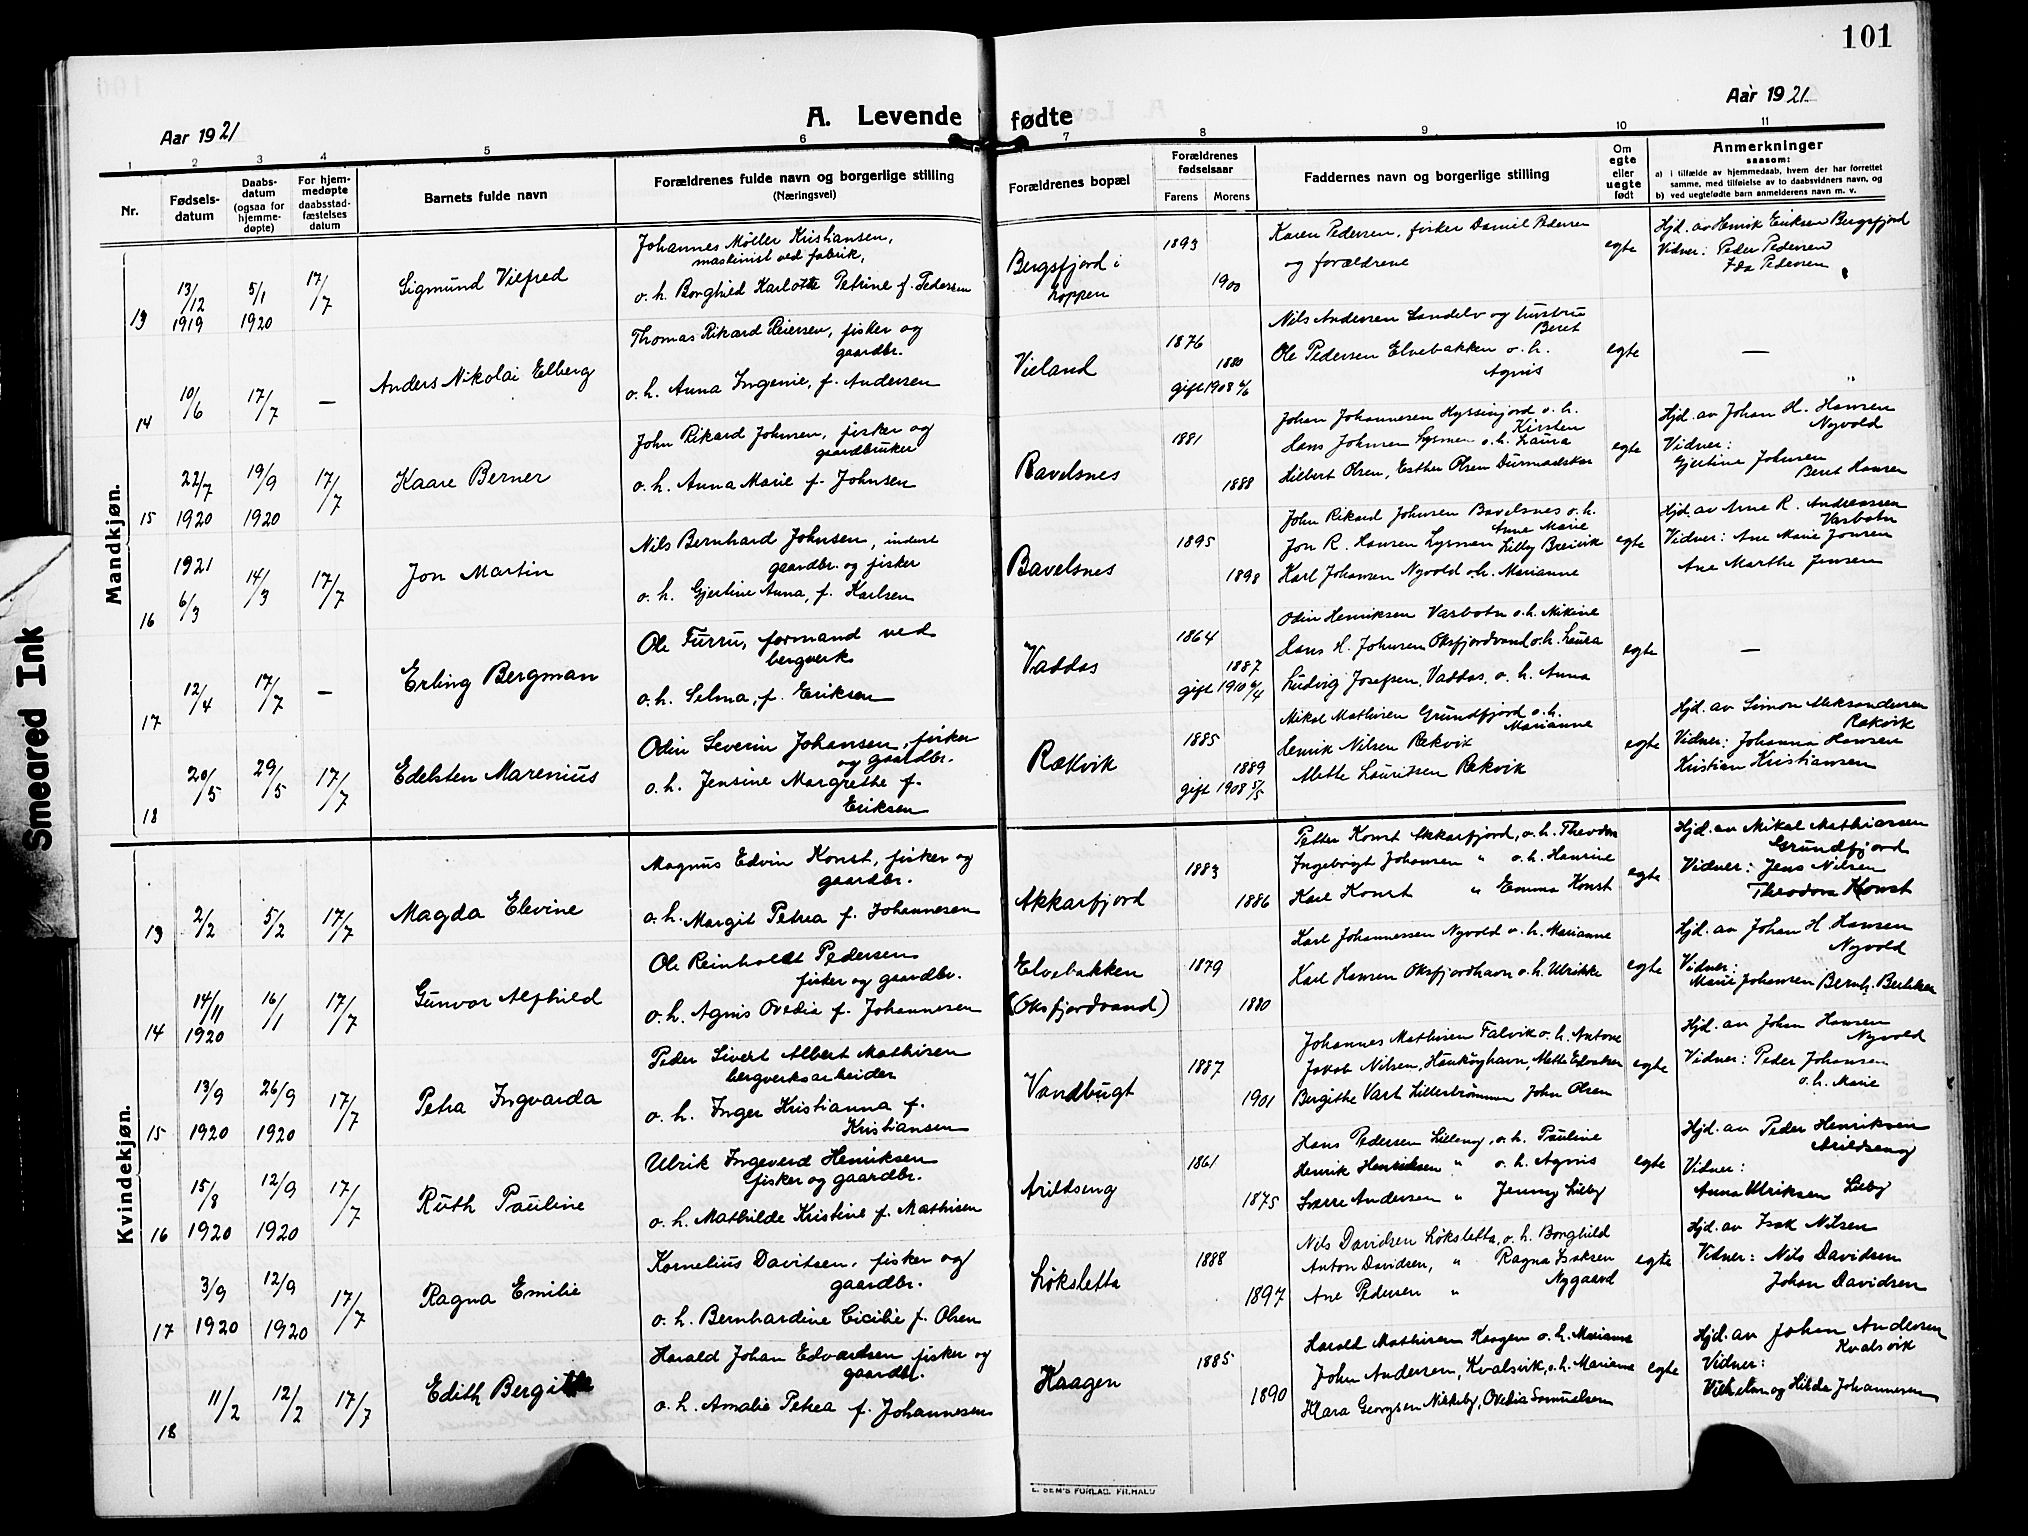 101
Aar 1921
A. Levende fødte
Aar 1921
1 2 3 4 5 6 7 8 9 10 11
Nr.
Fødsels-
datum
Daabs-
datum
(ogsaa for
hjemme-
døpte)
For hjem-
medøpte
daabsstad-
fæstelses
datum
Barnets fulde navn
Forældrenes fulde navn og borgerlige stilling
(Næringsvei)
Forældrenes bopæl
Forældrenes
fødselsaar
Farens Morens
Faddernes navn og borgerlige stilling
Om
egte
eller
uegte
født
Anmerkninger
saasom:
a) i tilfælde av hjemmedaab, hvem der har forrettet
samme, med tilføielse av to daabsvidners navn, og
b) ved uegtefødte barn anmelderens navn m. v.
Mandkjøn.
13
13/12
1919
5/1
1920
17/7
Sigmund Vilfred
Johannes Møller Kristiansen,
maskinist ved fabrik,
o. h. Borghild Karlotte Petrine f. Pedersen
Bergsfjord i
Loppen
1893
1900
Karen Pedersen, fisker Daniel Pedersen
og forældrene
egte
Hjd. av Henrik Eriksen Bergsfjord
Vidner: Peder Pedersen
Ida Pedersen
14
10/6
17/7
—
Anders Nikolai Elberg
Thomas Rikard Peiersen, fisker og
gaardbr.
o. h. Anna Ingenie, f. Andersen
Vieland
1876
1880
gift 1908 4/6
Nils Andersen Sandelv og hustru
Beret
Ole Pedersen Elvebakken o. h.
Agnis
egte
—
15
22/7
1920
19/9
1920
17/7
Kaare Berner
John Rikard Johnsen, fisker og
gaardbruker
o. h. Anna Marie f. Johnsen
Bavelsnes
1881
1888
Johan Johannesen o. h.
Kirsten
Hans Johnsen o. h. Laura
Hilbert Olsen, Esther Olsen
egte
Hjd. av Johan H. Hansen
Nyvold
Vidner:
Gjertine Johnsen
Beret Hansen
16
1921
6/3
14/3
17/7
Jon Martin
Nils Bernhard Johnsen, inderst
gaardbr. og fisker
o. h. Gjertine Anna, f. Karlsen
Bavelsnes
1895
1898
John Rikard Johnsen Bavelsnes o. h.
Anna Marie
Jon R. Hansen Lilly Breivik
Karl Johansen Nyvold o. h. Marianne
egte
Hjd. av Arne R. Andreassen
Vasbotn
Vidner: Ane Marie Jonsen
Ane Marthe Jensen
17
12/4
17/7
—
Erling Bergman
Ole Furru, formand ved
bergverk
o. h. Selma, f. Eriksen
Vaddas
1864
1887
gift 1910
Odin Henriksen Vasbotn o. h. Nikine
Hans H. Johnsen Oksfjordvand o. h. Laura
Ludvig Josefsen, Vaddas, o. h. Anna
egte
—
18
20/5
29/5
17/7
Edelsten Marenius
Odin Severin Johansen, fisker
og gaardbr.
o. h. Jensine Margrethe f.
Eriksen
Rækvik
1885
1889
gift 1908 5/5
Nikol Mathisen Grundfjord o. h.
Marianne
Henrik Nilsen Rekvik
Mette Lauritsen Rekvik
egte
Hjd. av Simon Aleksandersen
Rækvik
Vidner: Johanna Hansen
Kristian Kristiansen
Kvindekjøn.
13
2/2
5/2
17/7
Magda Elevine
Magnus Edvin Konst, fisker og
gaardbr.
o. h. Margit Petrea f. Johannesen
Akkarfjord
1883
1886
Petter Konst Akkarfjord, o. h. Theodora
Ingebrigt Johansen " o. h. Hansine
Karl Konst " Emma Konst
egte
Hjd. av Mikal Mathiassen
Grundfjord
Vidner: Jens Nilsen
Theodora Konst
14
14/11
1920
16/1
17/7
Gunvor Alfhild
Ole Reinholdt Pedersen
fisker og gaardbr.
o. h. Agnis Ovedia f. Johannesen
Elvebakken
(Oksfjordvand)
1879
1880
Karl Johannessen Nyvold o. h. Marianne
Karl Hansen Oksfjordhavn o. h. Ulrikke
egte
Hjd. av Johan H Hansen
Nyvold
Vidner:
Marie Johansen
15
13/9
1920
26/9
1920
17/7
Petra Ingvarda
Peder Sivert Albert Mathisen
bergverksarbeider
o. h. Inger Kristianna f.
Kristiansen
Vandbugt
1887
1901
Johannes Mathisen Falvik o. h. Antone
Jakob Nilsen, Haukøyhavn, Mette
Bergithe John Olsen
egte
Hjd. av Johan Hansen
Nyvold
Vidner: Peder Johansen
o. h. Marie
16
15/8
1920
12/9
1920
17/7
Ruth Pauline
Ulrik Ingeverd Henriksen
fisker og gaardbr.
o. h. Mathilde Kristine f. Mathisen
Arildseng
1861
1875
Hans Pedersen Lilleng, o. h. Pauline
Henrik Henriksen " o. h. Agnis
Sverre Andersen " Jenny Lilby
egte
Hjd. av Peder Henriksen
Arildseng
Vidner:
Anna Ulriksen Lilby
17
3/9
1920
12/9
1920
17/7
Ragna Emilie
Kornelius Davitsen, fisker og
gaardbr.
o. h. Bernhardine Cicilie f. Olsen
Løksletta
1888
1897
Nils Davidsen Løksletta, o. h. Borghild
Anton Davidsen, " Ragna Isaksen
Nygaard
Ane Pedersen "
egte
Hjd. av Isak Nilsen
Vidner: Nils Davidsen
Johan Davidsen
18
11/2
12/2
17/7
Edith Bergitte
Harald Johan Edvardsen fisker og
gaardbr.
o. h. Amalie Petrea f. Johannesen
Kaagen
1885
1890
Harald Mathisen Kaagen o. h. Mariane
John Andersen, Kvalsvik, o. h. Mariane
Klara Georgsen Nikkeby, Ovedia Samuelsen
egte
Hjd. av Johan Andersen
Kvalsvik
Vidner:
Vilhelm og Hilda Johannesen
E. SEM'S FORLAG, FR.HALD
Smeared Ink